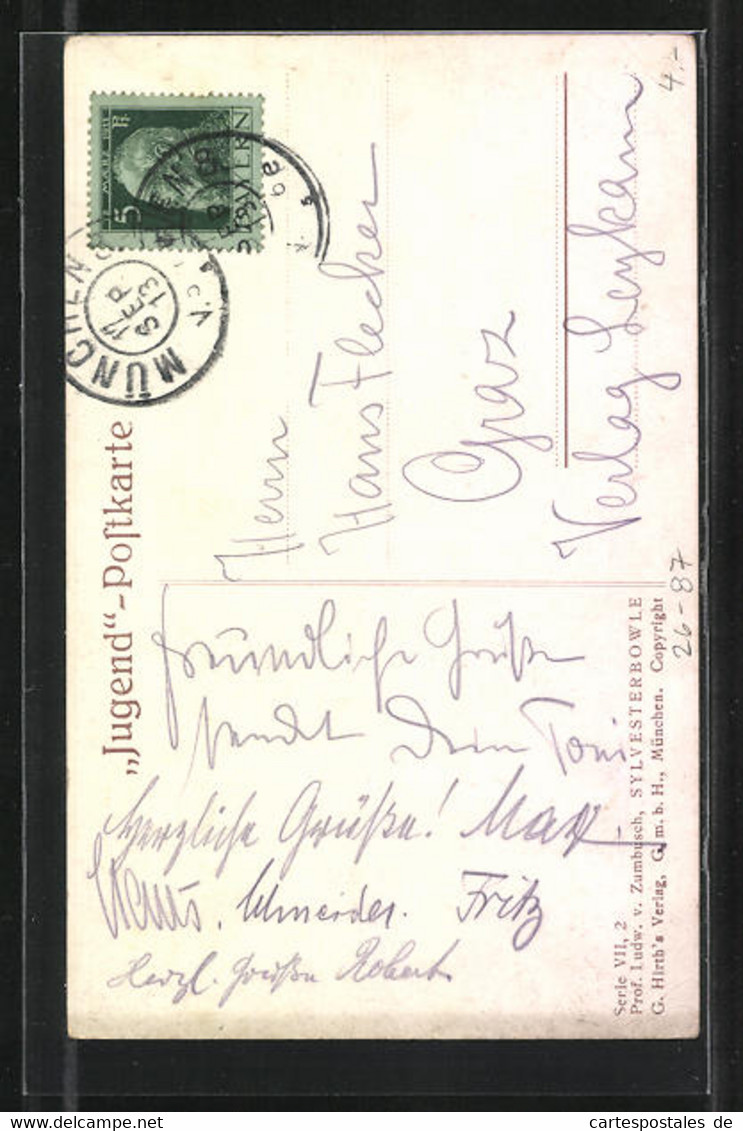 „Jugend“-Postkarte
BAYERN
5
MÜNCHEN
11 SEP 13
Herrn
Hans Flecker
Graz
Verlag Leykam
freundliche Grüße
sendet Dein Toni
Herzliche Grüße! Max
Fritz
Herzl. Grüße Robert
Serie VII, 2
Prof. Ludw. v. Zumbusch, SYLVESTERBOWLE
G. Hirth's Verlag, G. m. b. H., München. Copyright
4.-
26-87
cartespostales de